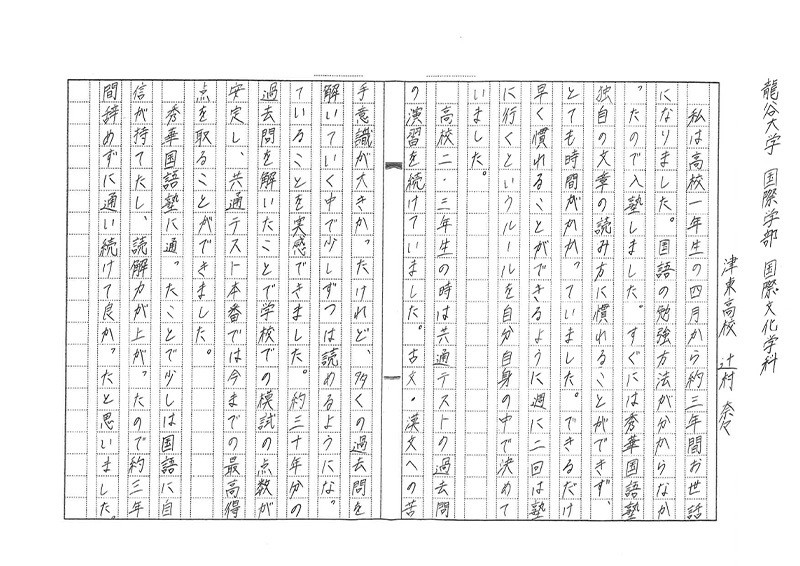 龍谷大学 国際学部 国際文化学科
津東高校 辻村 奈々
私は高校一年生の四月から約三年間お世話
になりました。国語の勉強方法が分からなか
ったので入塾しました。すぐには秀華国語塾
独自の文章の読み方に慣れることができず、
とても時間がかかっていました。できるだけ
早く慣れることができるように週に二回は塾
に行くというルールを自分自身の中で決めて
いました。
高校二・三年生の時は共通テストの過去問
の演習を続けていました。古文・漢文への苦
手意識が大きかったけれど、多くの過去問を
解いていく中で少しずつは読めるようになっ
ていることを実感できました。約三十年分の
過去問を解いたことで学校での模試の点数が
安定し、共通テスト本番では今までの最高得
点を取ることができました。
秀華国語塾に通ったことで少しは国語に自
信が持てたし、読解力が上がったので約三年
間辞めずに通い続けて良かったと思いました。